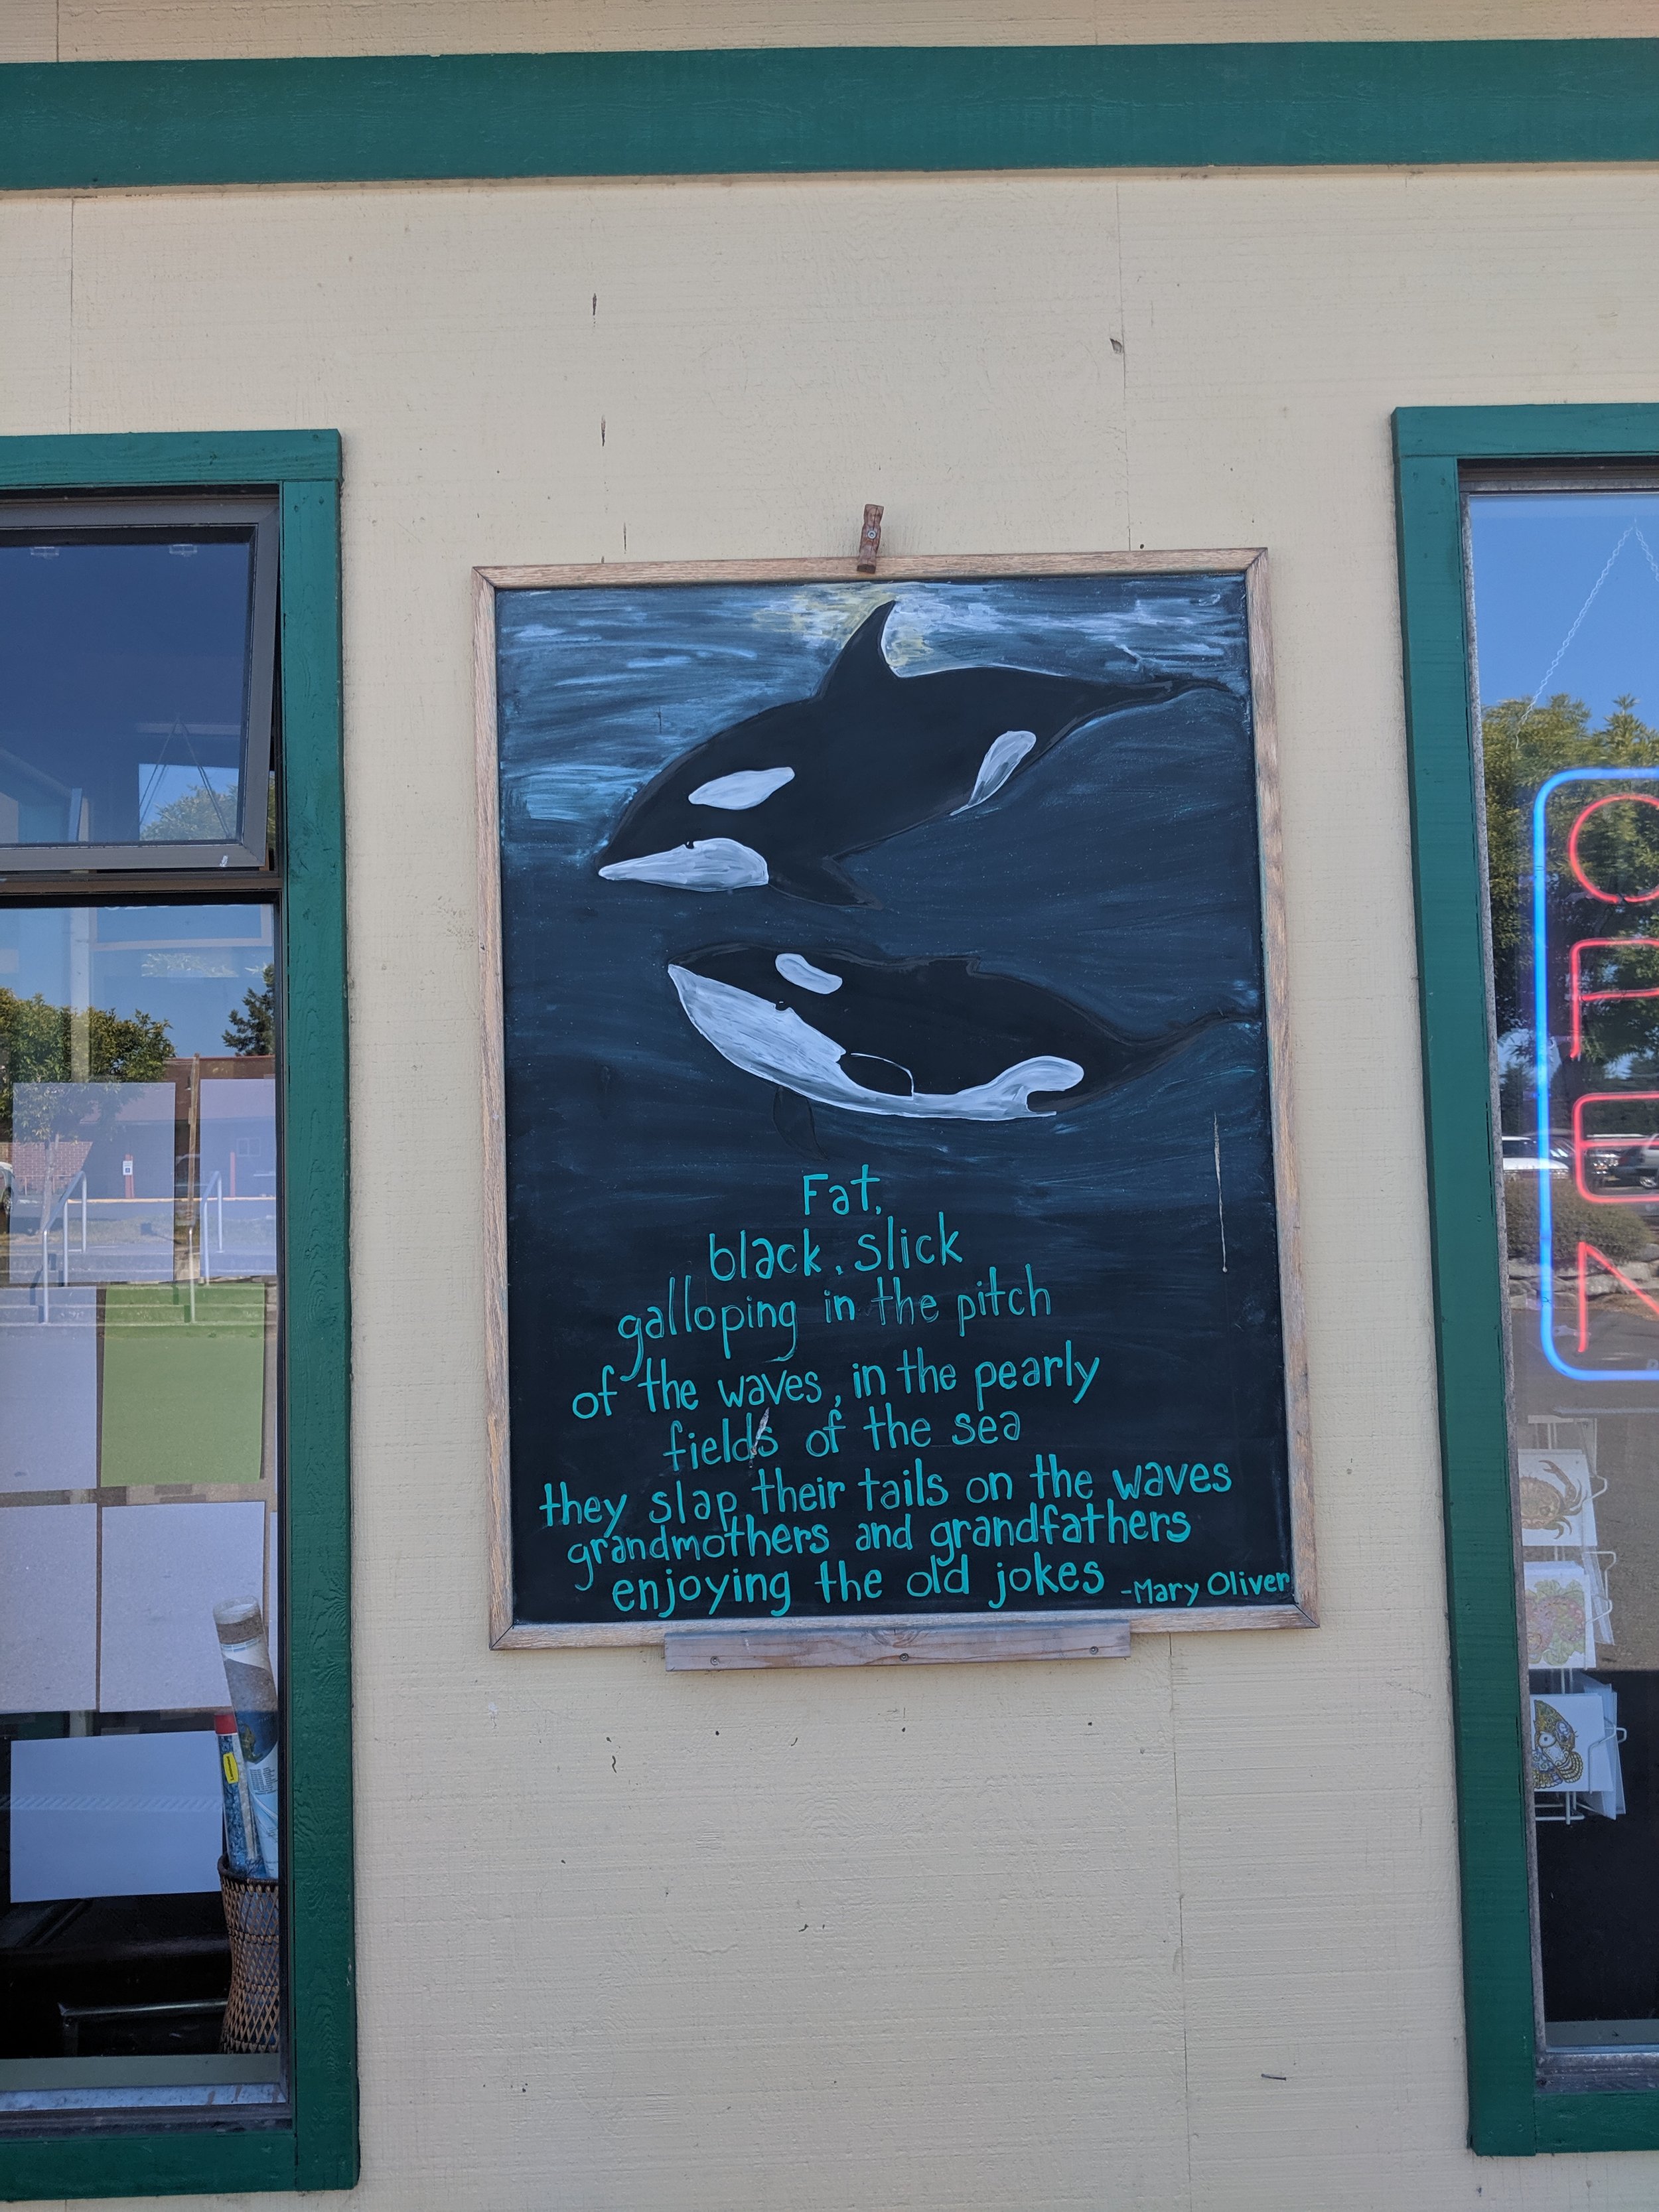 Fat,
black, slick
galloping in the pitch
of the waves, in the pearly
fields of the sea
they slap their tails on the waves
grandmothers and grandfathers
enjoying the old jokes -Mary Oliver
OPEN